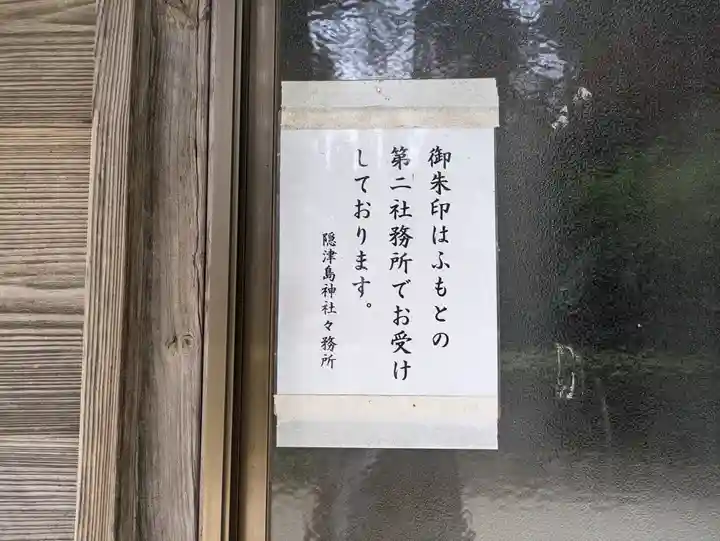 御朱印はふもとの
第二社務所でお受け
しております。
隠津島神社々務所